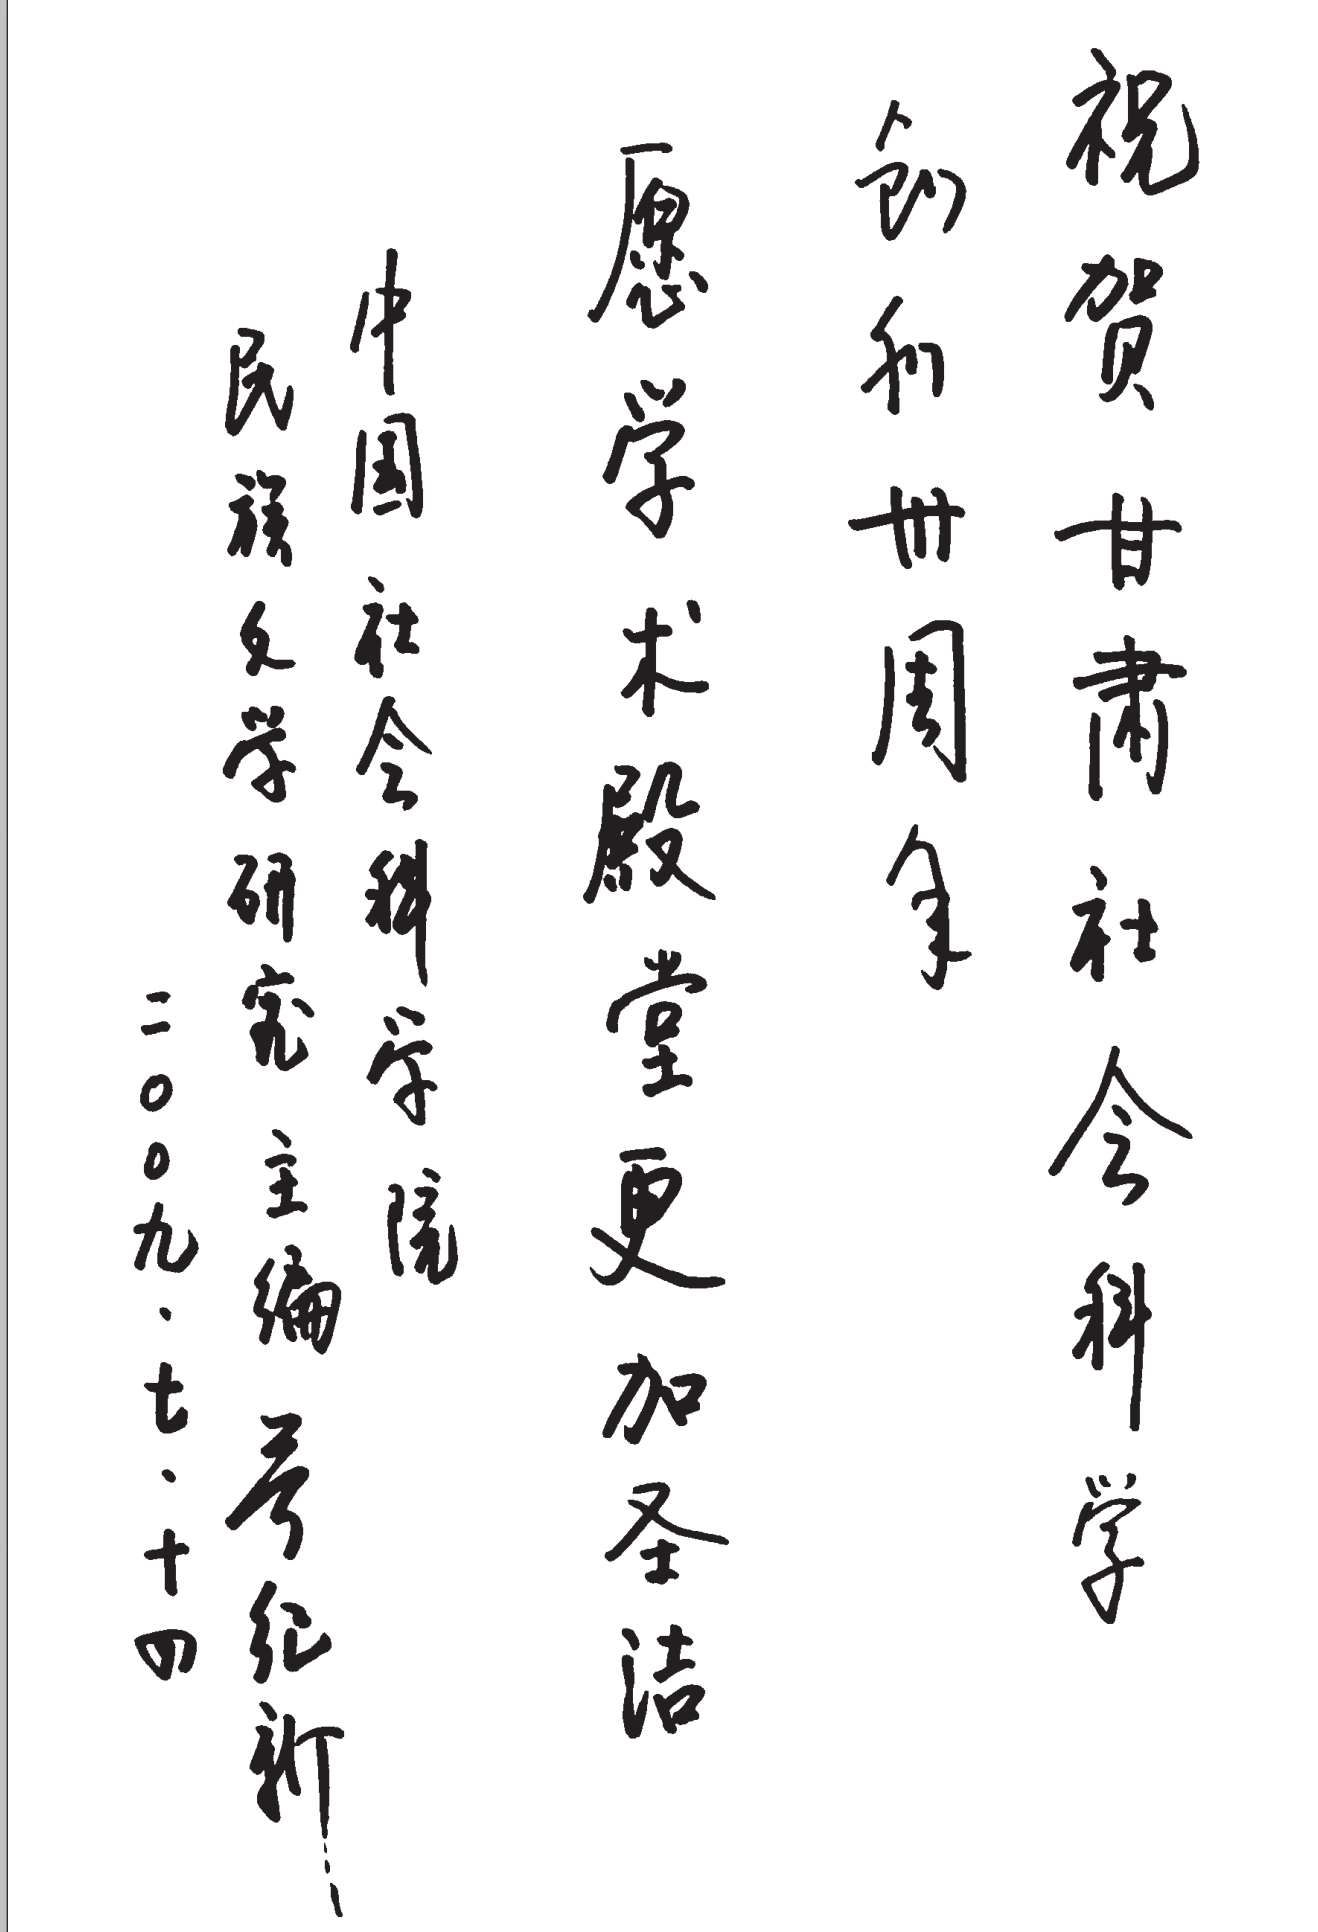 祝贺甘肃社会科学
创刊卅周年
愿学术殿堂更加圣洁
中国社会科学院
民族文学研究主编 关纪新
二〇〇九.七.十四